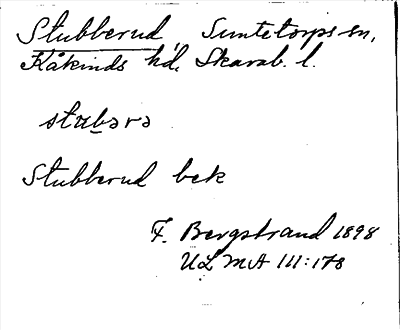 Stubberud, Suntetorps sn,
Kåkinds hd, Skarab. l.
stubərə
Stubberud bek
F. Bergstrand 1898
ULMA 111:178